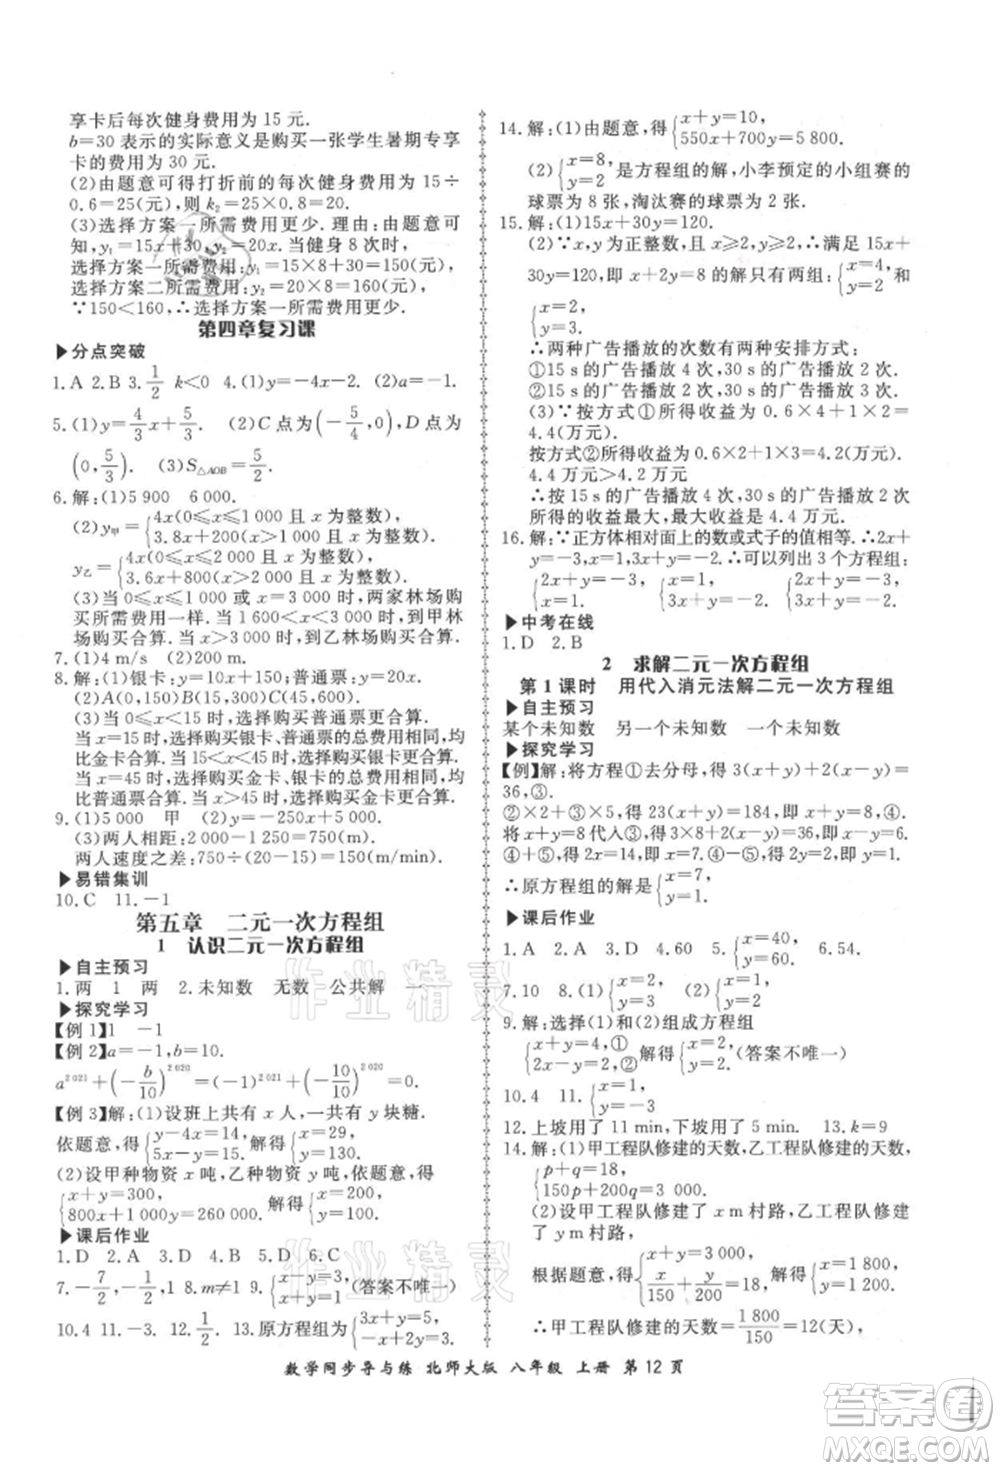 享卡后每次健身费用为 15 元.
b=30 表示的实际意义是购买一张学生暑期专享
卡的费用为 30 元.
(2)由题意可得打折前的每次健身费用为 15÷
0.6=25(元),则 k₂=25×0.8=20.
(3)选择方案一所需费用更少. 理由:由题意可
知,y₁=15x+30,y₂=20x. 当健身 8 次时,
选择方案一所需费用:y₁=15×8+30=150(元),
选择方案二所需费用:y₂=20×8=160(元),
∵150<160,∴选择方案一所需费用更少.
第四章复习课
▶分点突破
1.A 2.B 3.1/2 k<0 4.(1)y=-4x-2. (2)a=-1.
5.(1)y=4/3x+5/3. (2)C 点为(-5/4,0),D 点为
(0,5/3). (3)S△AOB=5/2.
6.解:(1)5 900 6 000.
(2)y甲={4x(0≤x≤1 000 且 x 为整数),
3.8x+200(x>1 000 且 x 为整数).
y乙={4x(0≤x≤2 000 且 x 为整数),
3.6x+800(x>2 000 且 x 为整数).
(3)当 0≤x≤1 000 或 x=3 000 时,两家林场购
买所需费用一样. 当 1 600<x<3 000 时,到甲林
场购买合算. 当 x>3 000 时,到乙林场购买合算.
7.(1)4 m/s (2)200 m.
8.解:(1)银卡:y=10x+150;普通票:y=20x.
(2)A(0,150)B(15,300)C(45,600).
(3)当 0<x<15 时,选择购买普通票更合算.
当 x=15 时,选择购买银卡、普通票的总费用相同,均
比金卡合算. 当 15<x<45 时,选择购买银卡更合算.
当 x=45 时,选择购买金卡、银卡的总费用相同,均
比普通票合算. 当 x>45 时,选择购买金卡更合算.
9.(1)5 000 甲 (2)y=-200x+5 000.
(3)两人相距:2 000-1 250=750(m).
两人速度之差:750÷(20-15)=150(m/min).
▶易错集训
10.C 11.-1
第五章 二元一次方程组
1 认识二元一次方程组
▶自主预习
1.两 1 两 2.未知数 无数 公共解 一
▶探究学习
【例 1】1 -1
【例 2】a=-1,b=10.
a²⁰²¹+(-b/10)²⁰²⁰=(-1)²⁰²¹+(-10/10)²⁰²⁰=0.
【例 3】解:(1)设班上共有 x 人,一共有 y 块糖.
依题意,得{y-4x=14, 5x-y=15. 解得{x=29, y=130.
(2)设甲种物资 x 吨,乙种物资 y 吨,依题意,得
{x+y=300, 800x+1 000y=260 000. 解得{x=200, y=100.
▶课后作业
1.D 2.A 3.D 4.B 5.D 6.C
7.-7/2 -1/2 8.m≠1 9.{x-y=1, x+y=5.(答案不唯一)
10.4 11.-3. 12.2/3. 13.原方程组为{3x+y=5, 4x-2y=0.
14.解:(1)由题意,得{x+y=10, 550x+700y=5 800.
(2){x=8, y=2 是方程组的解,小李预定的小组赛的
球票为 8 张,淘汰赛的球票为 2 张.
15.解:(1)15x+30y=120.
(2)∵x,y 为正整数,且 x≥2,y≥2,∴满足 15x+
30y=120,即 x+2y=8 的解只有两组:{x=4, y=2 和
{x=2, y=3.
∴两种广告播放的次数有两种安排方式:
①15 s 的广告播放 4次,30 s 的广告播放 2 次.
②15 s 的广告播放 2次,30 s 的广告播放 3 次.
(3)∵按方式①所得收益为 0.6×4+1×2=
4.4(万元).
按方式②所得收益为 0.6×2+1×3=4.2(万元).
4.4 万元>4.2 万元
∴按 15 s 的广告播放 4次,30 s 的广告播放 2 次
所得的收益最大,最大收益是 4.4 万元.
16.解:∵正方体相对面上的数或式子的值相等.∴2x+
y=-3,x-y=1,x=1.∴可以列出 3 个方程组:
{2x+y=-3, x=1. {x-y=1, x=1. {2x+y=-3, x-y=1.
▶中考在线
1.D 2.B
2 求解二元一次方程组
第 1 课时 用代入消元法解二元一次方程组
▶自主预习
某个未知数 另一个未知数 一个未知数
▶探究学习
【例】解:将方程①去分母,得 3(x+y)+2(x-y)=
36,③.
②×3+③×5,得 23(x+y)=184,即 x+y=8,④.
将 x+y=8 代入③,得 3×8+2(x-y)=36,即 x-y=6,⑤.
④+⑤,得 2x=14,即 x=7. ④-⑤,得 2y=2,即 y=1.
∴原方程组的解是{x=7, y=1.
▶课后作业
1.A 2.A 3.D 4.60 5.{x=40, y=60. 6.54.
7.10 8.(1){x=5, y=2. (2){x=1, y=3.
9.解:选择(1)和(2)组成方程组
{x+y=4,① 2x-y=-2,② 解得{x=2/3, y=10/3.(答案不唯一)
10.4 11.{x=3, y=-2. 12.上坡用了 11 min,下坡用了 5 min. 13.k=9
14.解:(1)甲工程队修建的天数,乙工程队修建的天数,
{p+q=18, 150p+200q=3 000.
(2)设甲工程队修建了 x m 村路,乙工程队修建了
y m 村路,
根据题意,得{x+y=3 000, x/150+y/200=18, 解得{x=1 800, y=1 200.
∴甲工程队修建的天数=1 800/150=12(天),
数学同步导与练 北师大版 八年级 上册 第 12 页
作业精灵
作业精灵
答案圈
MXQE.COM